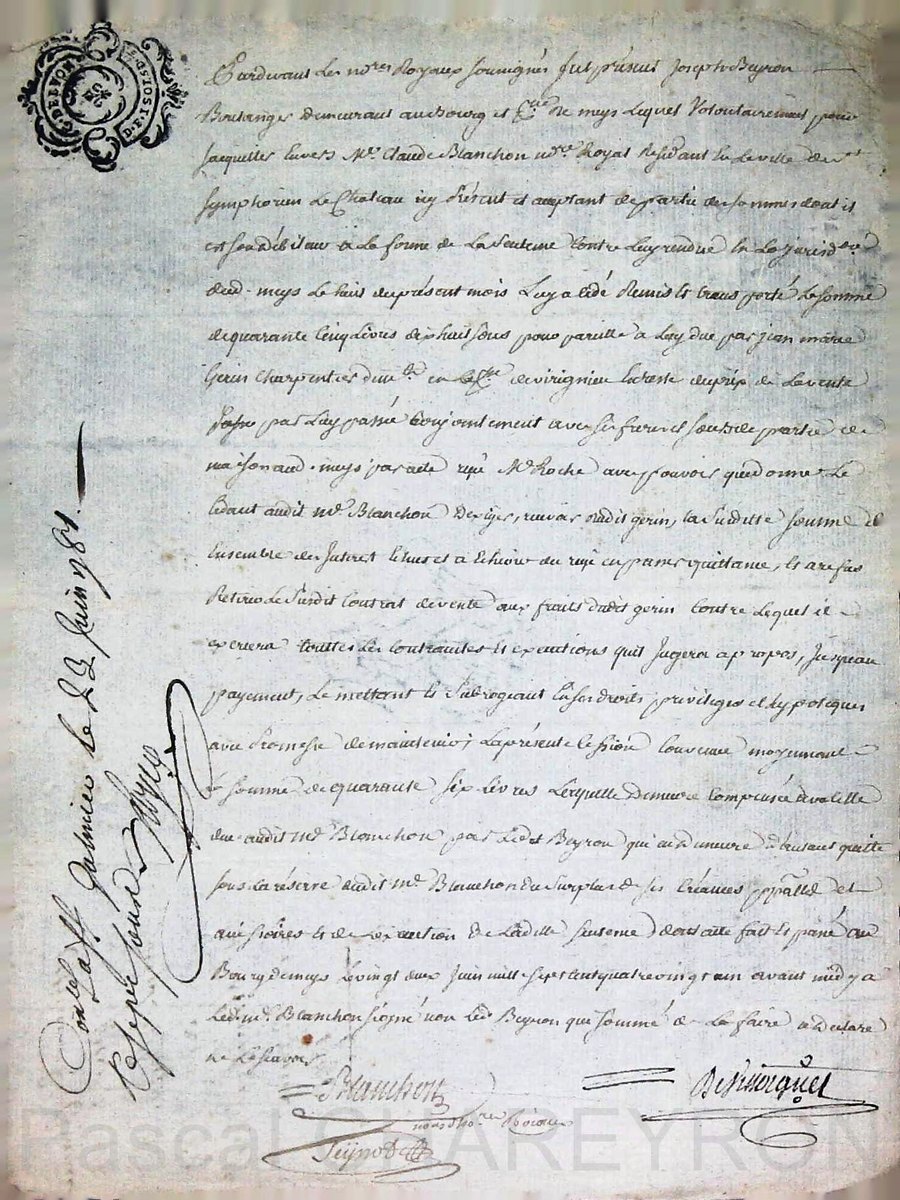 Pardevant Les no.res Royaux soussignés fut présent Joseph Beyron
Boulanger demeurant au bourg et de meys Lequel Volontairement pour
Sacquitter Envers M.e Claude Blanchon no.re Royal Résidant En la ville de St
Symphorien Le Chateau icy Présent et acceptant de partie des sommes dont il
est son débiteur a La forme de La Sentence Contre Luy rendue En La
dud. meys Le huit du présent mois Luy a Cédé Remis Et transporté La somme
de quarante Cinq Livres dix huit sous pour pareille a Luy due par jean marie
Gerin Charpentier en de virignieu En reste du prix de La vente
par Luy passé Conjointement avec Ses freres et Soeurs de partie de
maison aud. meys par acte reçu M.e Roche avec pouvoir que donne Le
Cédant audit m.e Blanchon d'exiger, recevoir dudit gerin, La Susditte Somme
Ensemble des Interets Echus et a Echoir du reçu en passer quittance, Et a refus
Retirer Le Susdit Contrat de vente aux fraits dudit gerin Contre Lequel il
exercera touttes Les Contraintes Et executions quil Jugera a propos, Jusqu'au
payement, Le mettant Et Subrogeant En Ses droits privileges et hypoteques
avec Promesse de maintenir, La présente Cession Convenue moyennant
La somme de quarante Six Livres Laquelle demeure Compensée a celle
due audit m.e Blanchon par Ledit Beyron qui en demeure d'autant quitte
sous La réserve dudit m.e Blanchon du Surplus de Ses Créances et
accessoires Et de L'execution de Laditte Sentence dont acte fait Et passé au
Bourg de meys Le vingt deux Juin mil Sept Cent quatre vingt un avant midy a
Led. m.e Blanchon signé non Led. Beyron qui sommé de La faire a déclaré
ne Le Scavoir
Blanchon
no.re Royaux
Con.lé a St Galmier le 22 Juin 1781.
G. DE LYON
D. 1. SOLS
Pascal CAREYRON